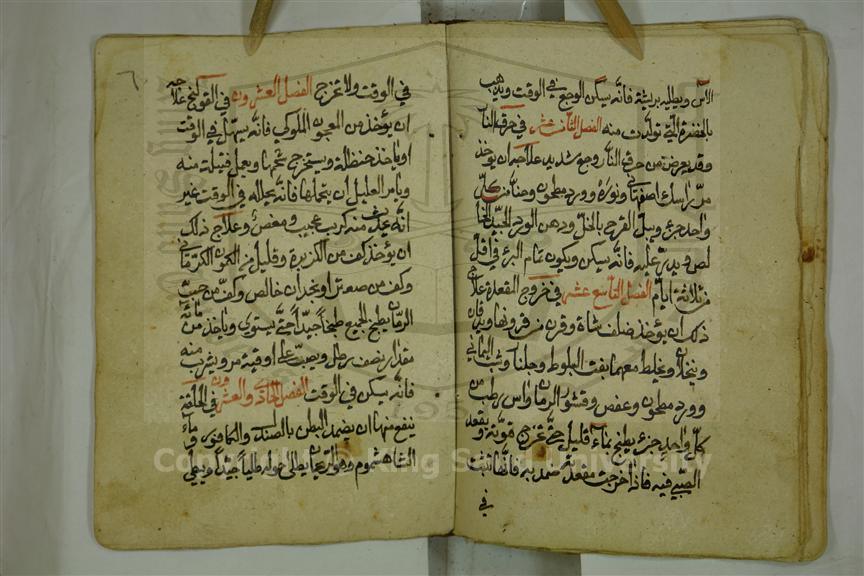 الآس ويطليه بريشة فانه يسكن الوجع في الوقت ويذهب
بالحفرة التي تولدت منه الفصل الثامن عشر في حرق النار
وقد يعرض من حرق النار وجع شديد علاجه ان يوخذ
مرد اسنك اصفهاني ونورة وورد مطحون وحنا من كل
واحد جزء ويبل القرح بالخل ودهن الورد الجيد الخا
لص ويذر عليه فانه يسكن ويكون تمام البرء في اقل
من ثلاثة ايام الفصل التاسع عشر في خروج المقعدة علاج
ذلك ان يوخذ ضلف شاة وقرن من قرونها ويدقان
وينخلان ويخلط معهما جفت البلوط وجلنار وشب اليماني
وورد مطحون وعفص وقشور الرمان واس رطب من
كل واحد جزء يطبخ بماء قليل حتى تخرج قوته ويقعد
الصبي فيه فاذا خرجت مقعدته ضمد به فانها تثبت
في
في الوقت ولا تخرج الفصل العشرون في القولنج علاجه
ان يؤخذ من العجون الملوكي فانه يسهل في الوقت
او ياخذ حنظلة ويستخرج شحمها ويعمل فتيلة منه
ويامر العليل ان يتحملها فانه يحلله في الوقت غير
انه يحدث منه كرب عجيب ومغص وعلاج ذلك
ان يؤخذ كف من الكزبرة وقليل من الكمون الكرماني
وكف من صعتر او نجدان خالص وكف من حب
الرمان يطبخ الجميع طبخا جيدا حتى يستوي وياخذ من مائه
مقدار نصف رطل ويصب على اوقية مر ويشرب منه
فانه يسكن في الوقت الفصل الحادي والعشرون في الخلفة
ينفع منها ان يضمد البطن بالصندل والكافور وماء
الشاهشموم وهو الريحان يطلى حوله طليا جيدا ويغلي